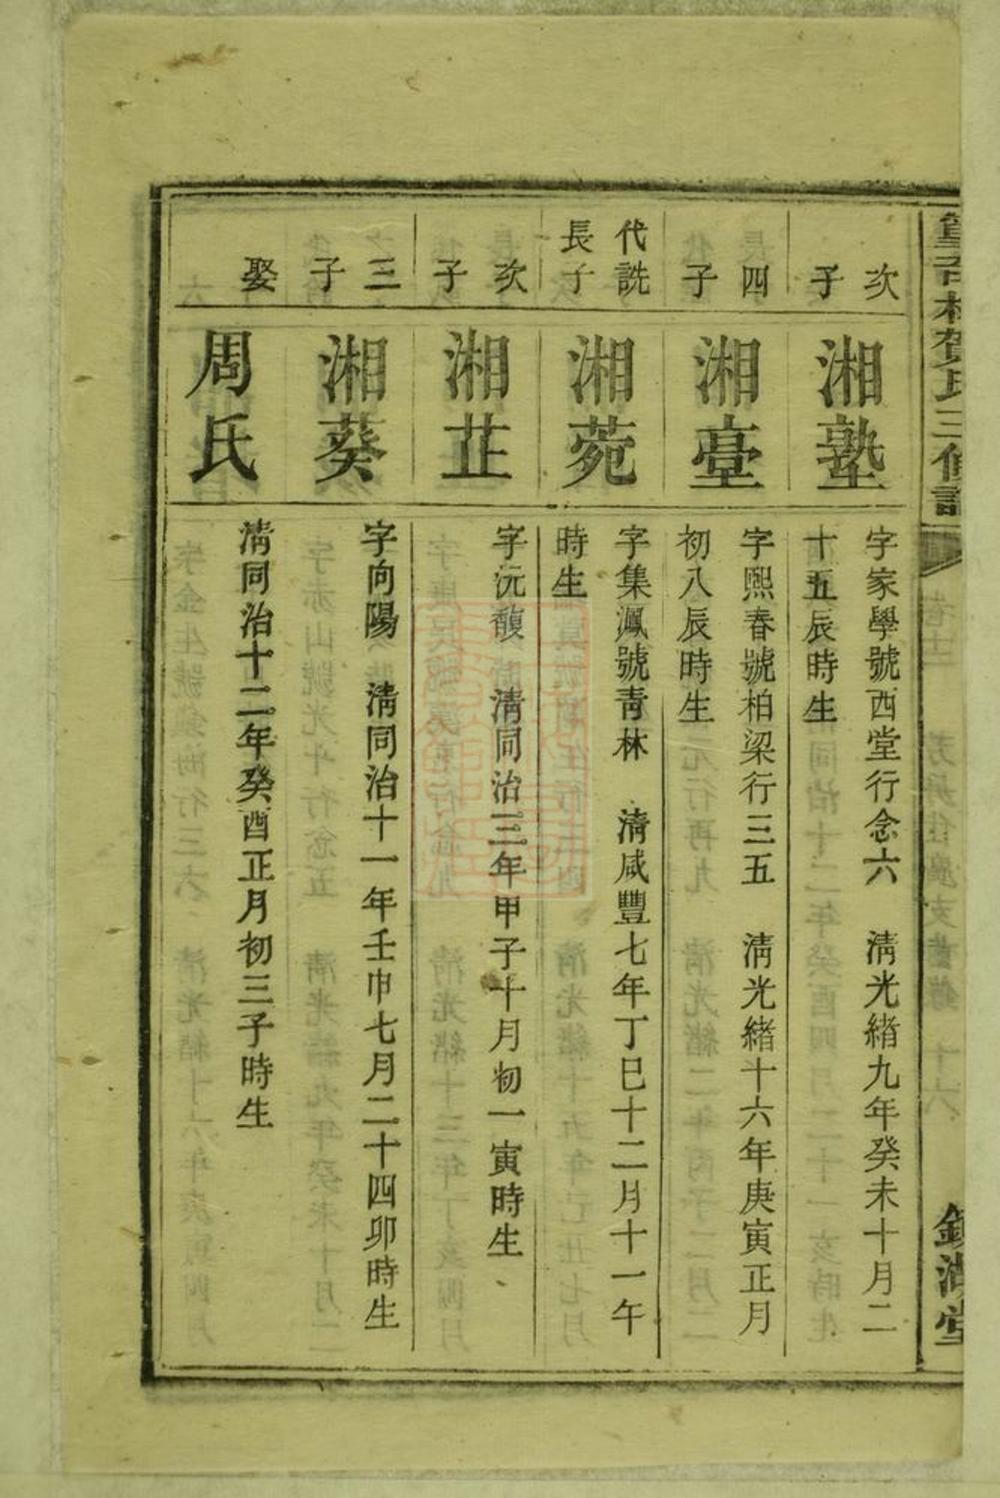 賀氏三修譜
鏡湖堂
次子
湘塾
字家學號西堂行念六 清光緒九年癸未十月二
十五辰時生
四子
湘臺
字熙春號柏梁行三五 清光緒十六年庚寅正月
初八辰時生
代詵長子
湘菀
字集鳳號青林 清咸豐七年丁巳十二月十一午
時生
次子
湘芷
字沅馥 清同治三年甲子十月初一寅時生
三子
湘葵
字向陽 清同治十一年壬申七月二十四卯時生
娶
周氏
清同治十二年癸酉正月初三子時生